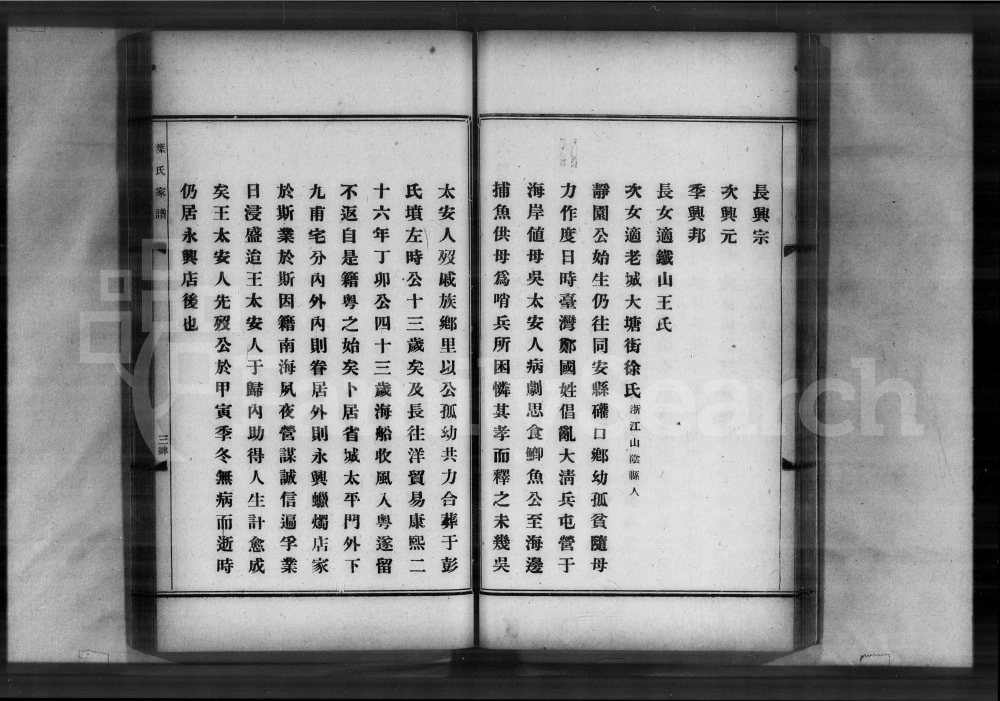 長興宗
次興元
季興邦
長女適鐵山王氏
次女適老城大塘街徐氏浙江山陰縣人
靜園公始生仍往同安縣礶口鄉幼孤貧隨母
力作度日時臺灣鄭國姓倡亂大淸兵屯營于
海岸値母吳太安人病劇思食鯽魚公至海邊
捕魚供母爲哨兵所困憐其孝而釋之未幾吳
太安人歿戚族鄉里以公孤幼共力合葬于彭
氏墳左時公十三歲矣及長往洋貿易康熙二
十六年丁卯公四十三歲海船收風入粵遂留
不返自是籍粵之始矣卜居省城太平門外下
九甫宅分內外內則眷居外則永興蠟燭店家
於斯業於斯因籍南海夙夜營謀誠信遍孚業
日浸盛迨王太安人于歸內助得人生計愈成
矣王太安人先歿公於甲寅季冬無病而逝時
仍居永興店後也
葉氏家譜